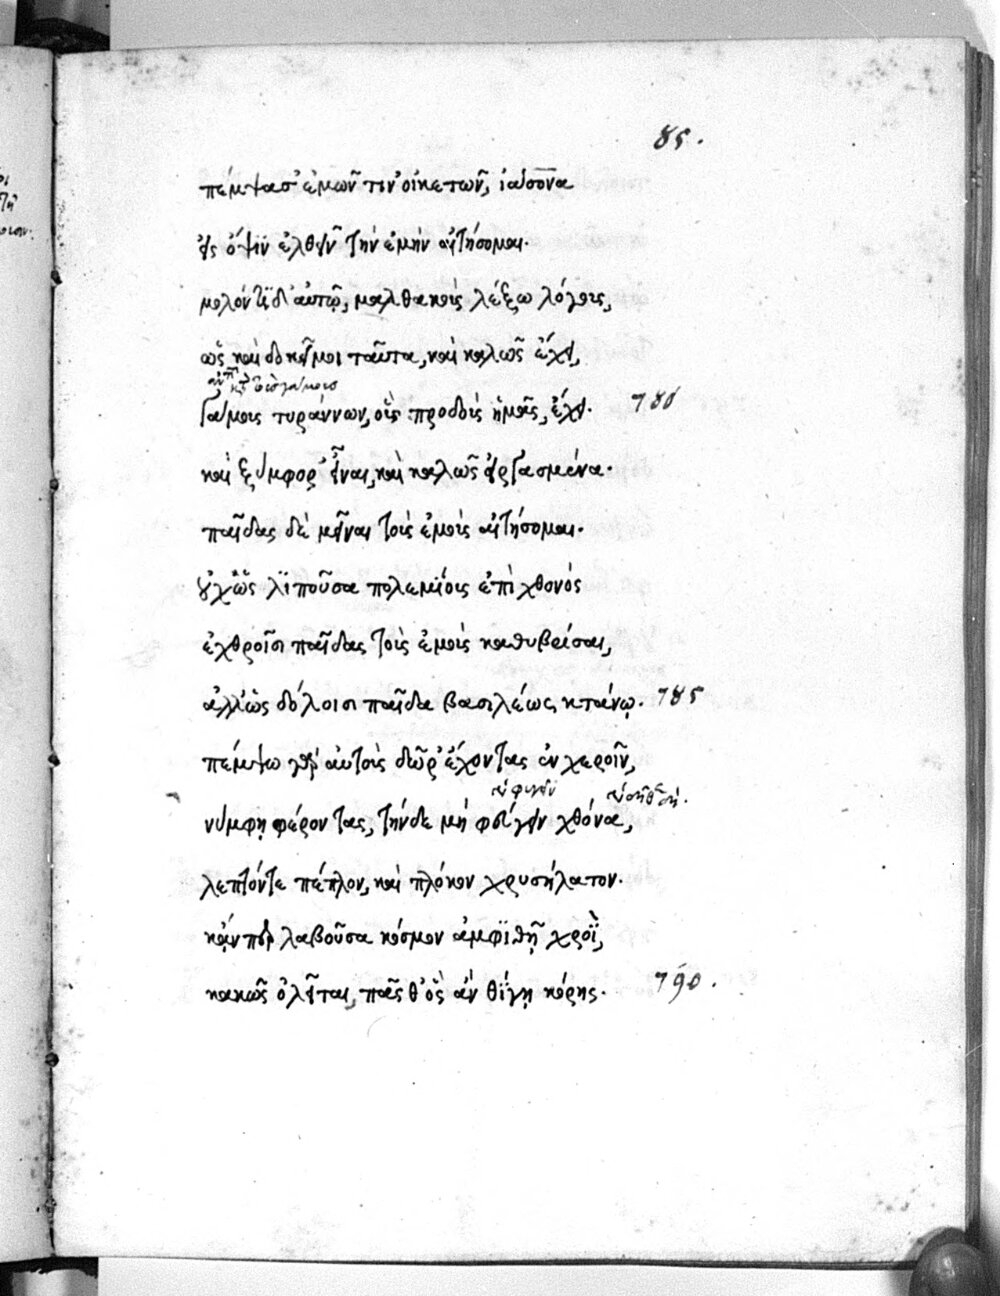 85.
πέμψασ' ἐμῶν τιν' οἰκετῶν, ἰάσονα
εἰς ὄψϊν ἐλθεῖν τὴν ἐμὴν αἰτήσομαι.
μολόντϊ δ' αὐτῷ, μαλθακοὺς λέξω λόγους,
ὡς καὶ δοκεῖ μοι ταῦτα, καὶ καλῶς ἔχει,
γάμους τυράννων, οὓς προδοὺς ἡμᾶς, ἔχει. 780
καὶ ξύμφορ' εἶναι, καὶ καλῶς εἰργασμένα.
παῖδας δὲ μεῖναι τοὺς ἐμοὺς αἰτήσομαι.
οὐχ ὡς λϊποῦσα πολεμίοις ἐπὶ χθονὸς
ἐχθροῖσι παῖδας τοὺς ἐμοὺς καθυβρίσαι,
ἀλλ' ὡς δόλοισι παῖδα βασιλέως κτάνω. 785
πέμψω γὰρ αὐτοὺς δῶρ' ἔχοντας ἐν χεροῖν,
νύμφῃ φέροντας, τήνδε μὴ φεύγειν χθόνα,
λεπτόν τε πέπλον, καὶ πλόκον χρυσήλατον.
κἄν περ λαβοῦσα κόσμον ἀμφϊθῇ χροῒ,
κακῶς ὀλεῖται, πᾶς θ' ὃς ἂν θίγῃ κόρης. 790.